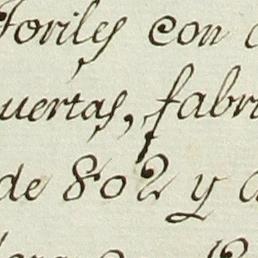 Toriles con
uertas, fabri
de 802 y